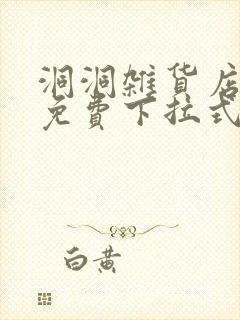 洞洞雜貨店
免費下拉式
白黄